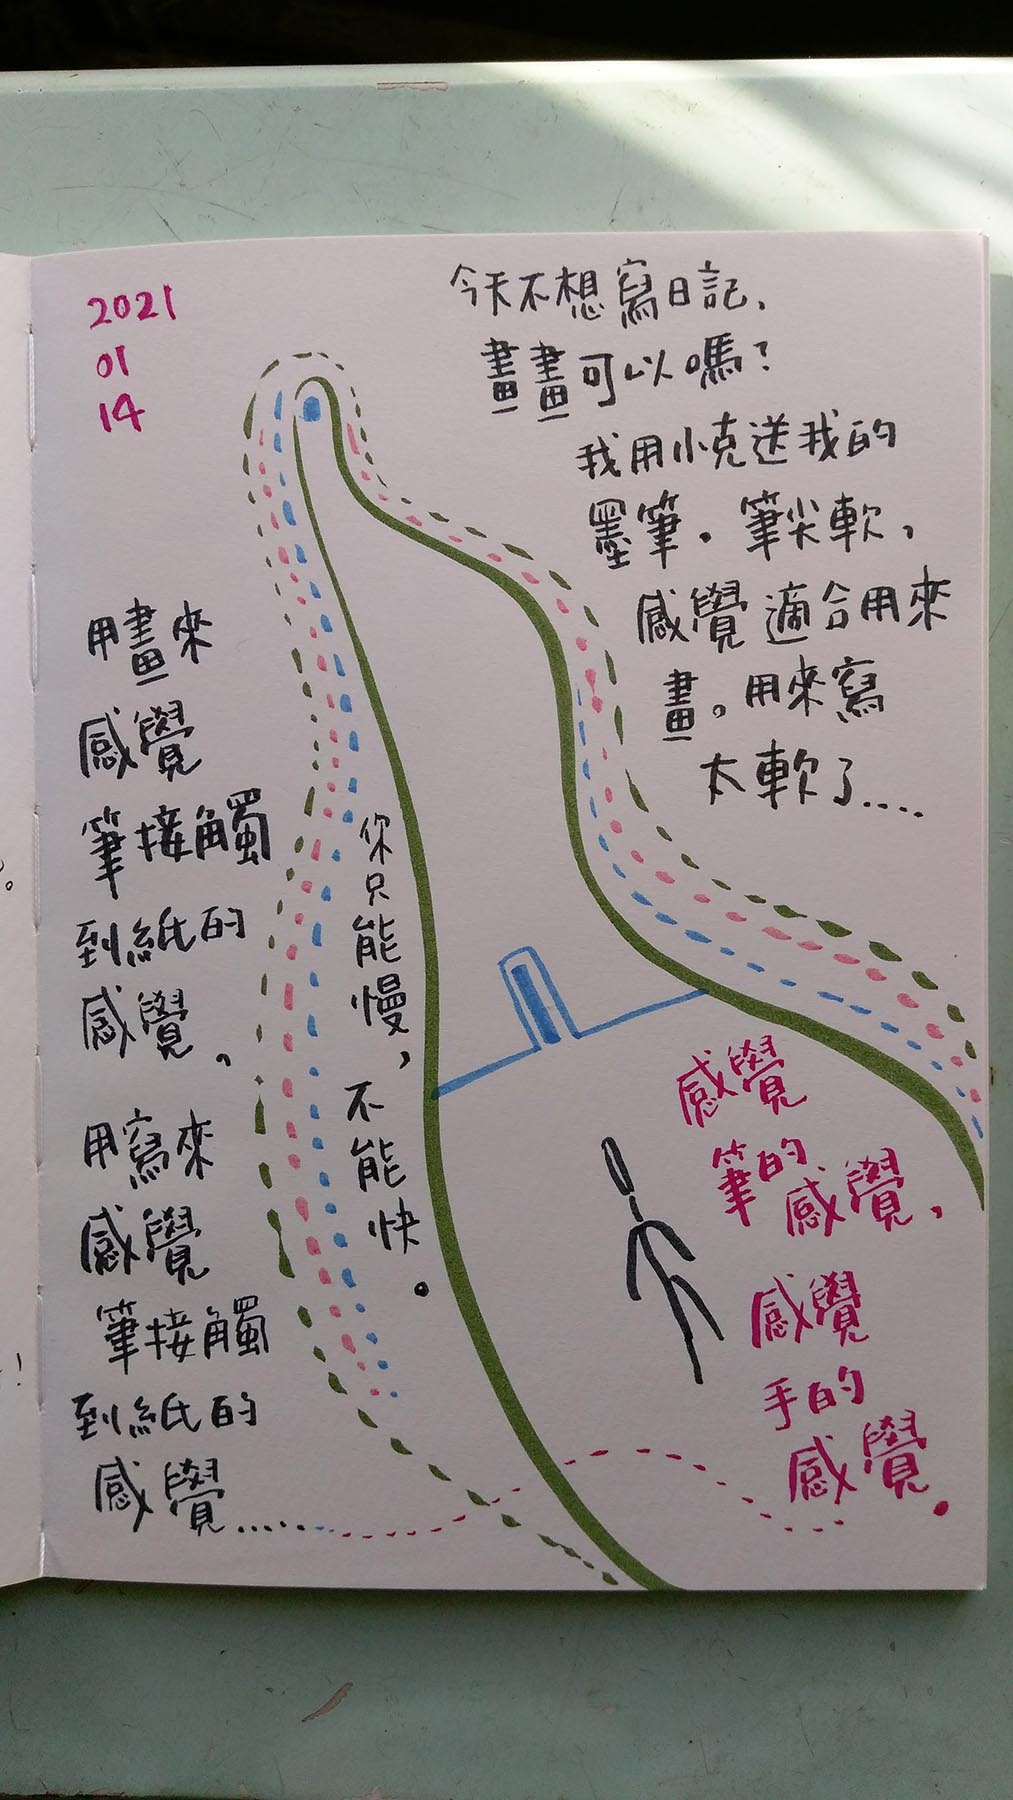 2021
01
14
今天不想寫日記,
畫畫可以嗎?
我用小克送我的
墨筆。筆尖軟,
感覺適合用來
畫。用來寫
太軟了....
用畫來
感覺
筆接觸
到紙的
感覺,
用寫來
感覺
筆接觸
到紙的
感覺....
你只能慢,不能快。
感覺
筆的
感覺,
感覺
手的
感覺.